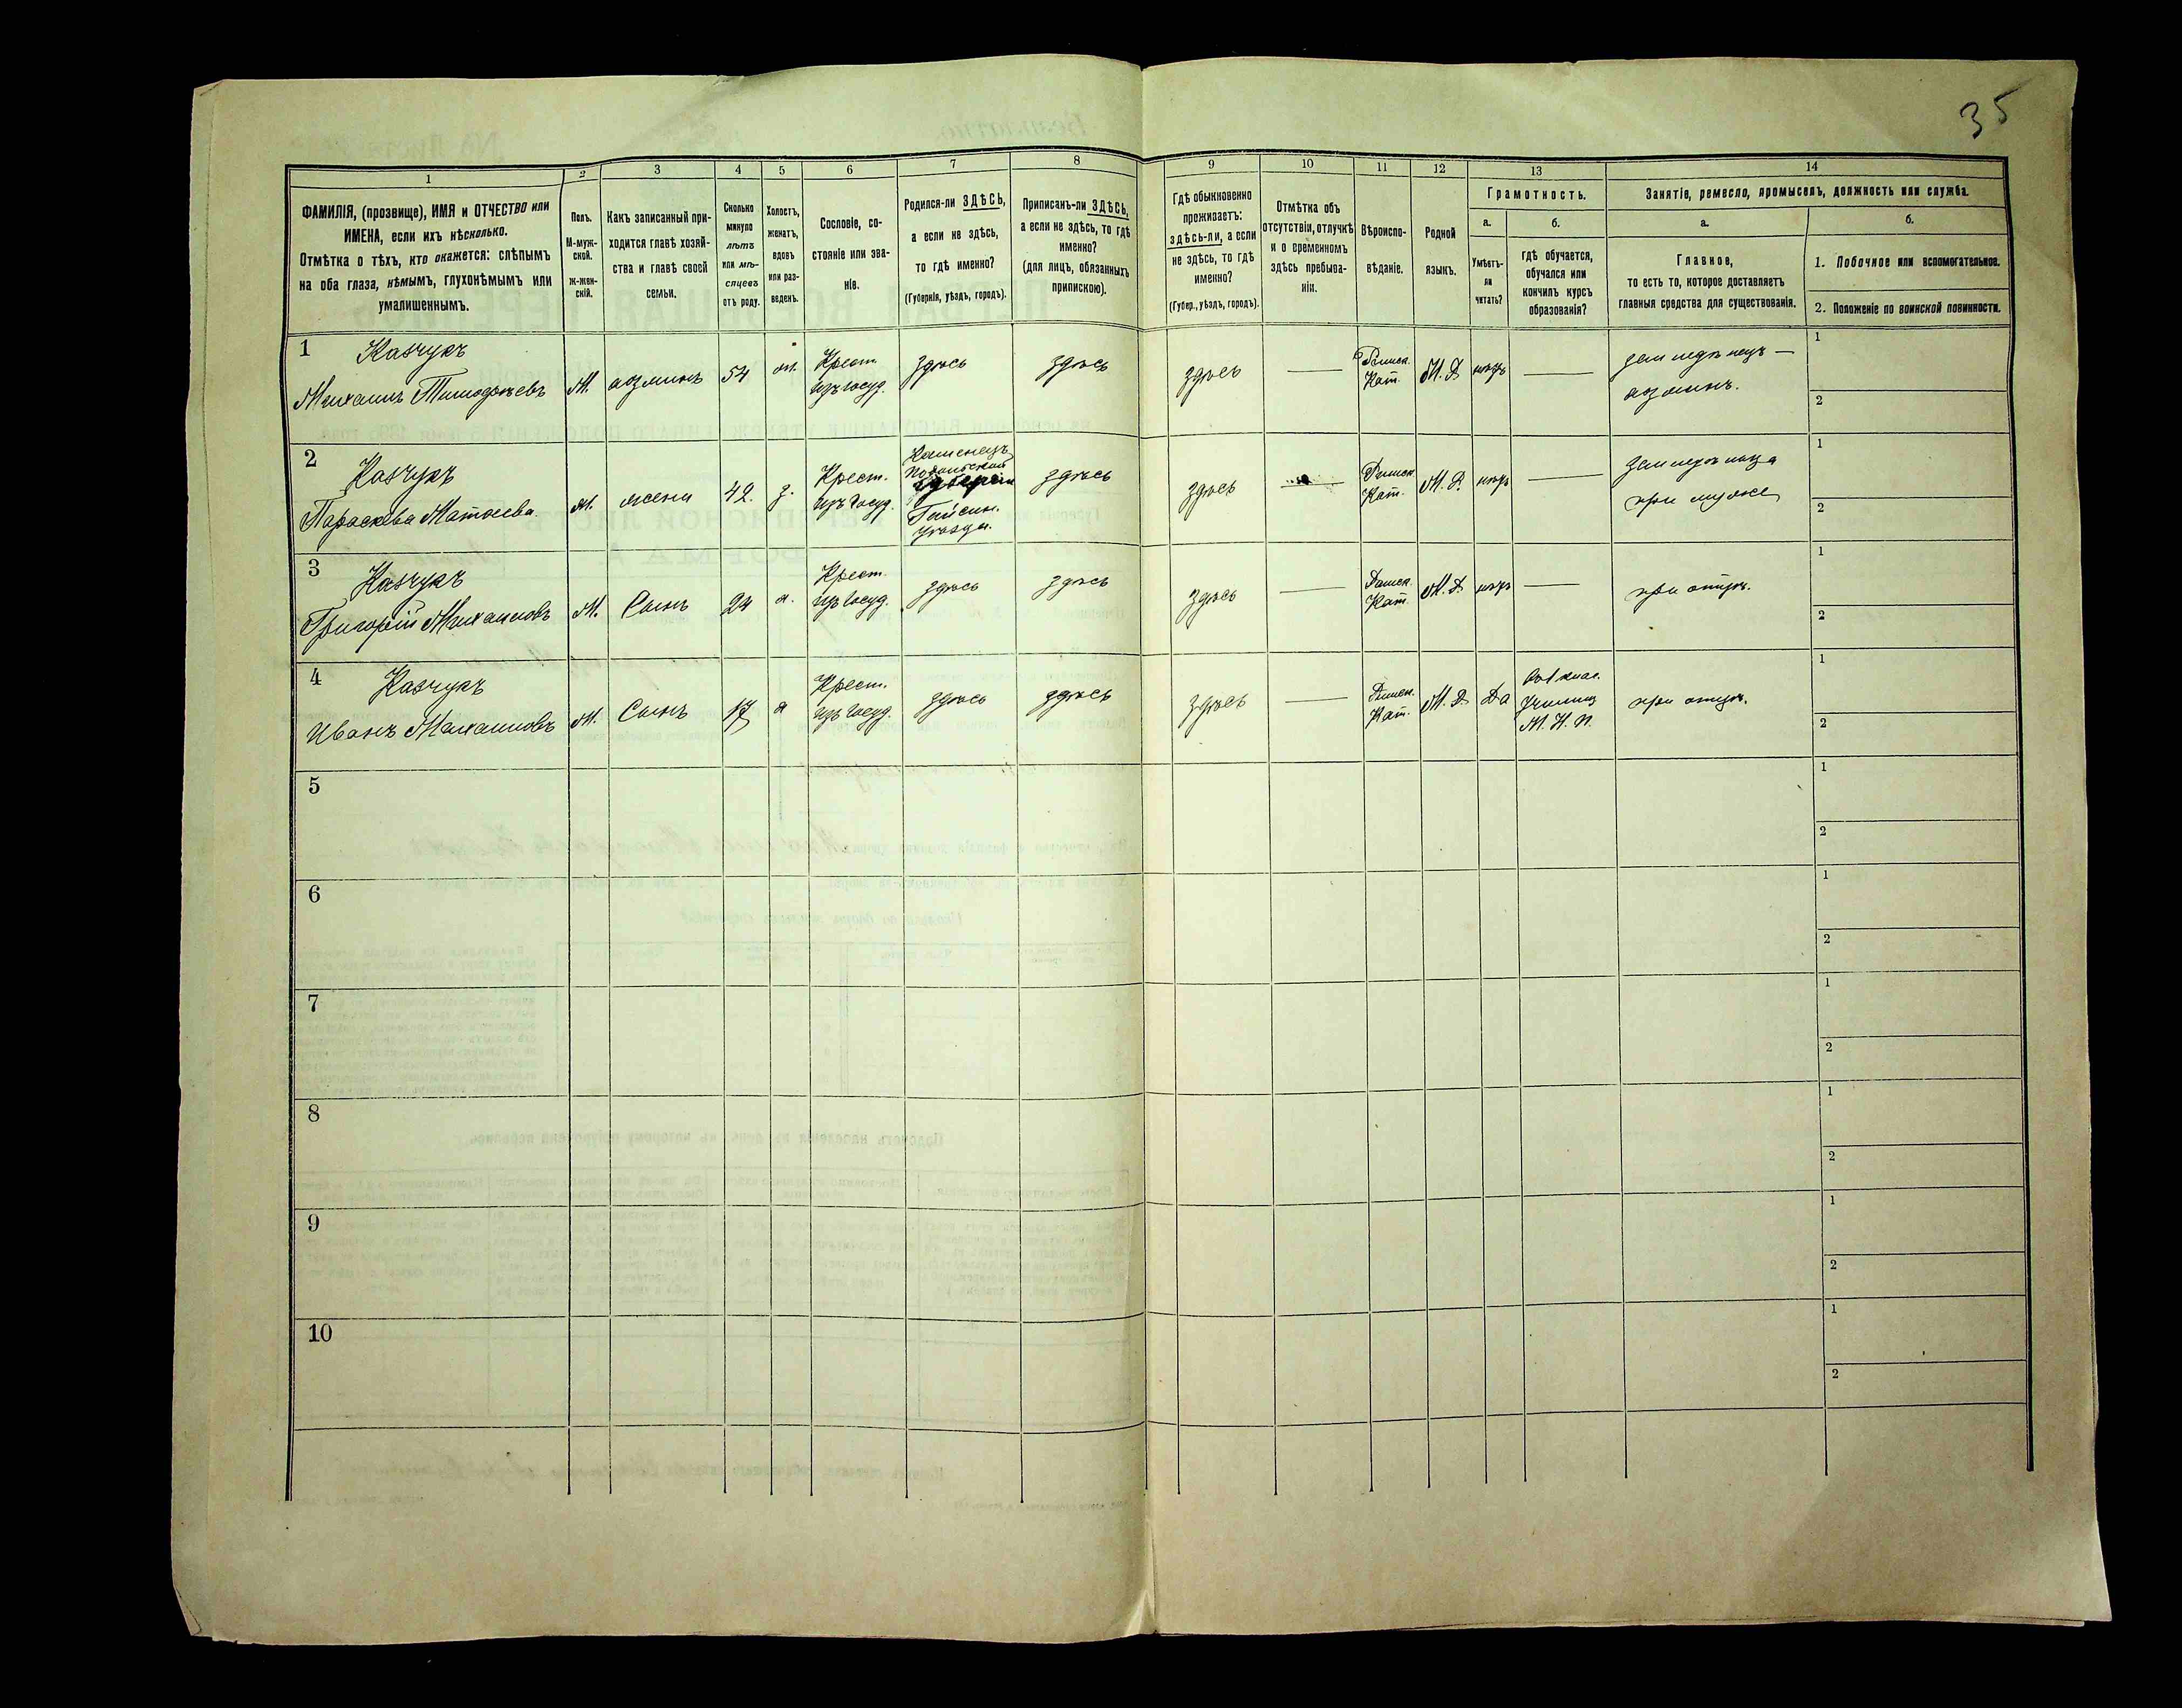 35
1 2 3 4 5 6 7 8 9 10 11 12 13 14
ФАМИЛІЯ, (прозвище), ИМЯ и ОТЧЕСТВО или
ИМЕНА, если ихъ нѣсколько.
Отмѣтка о тѣхъ, кто окажется: слѣпымъ
на оба глаза, нѣмымъ, глухонѣмымъ или
умалишеннымъ.
Полъ.
М-муж-
ской.
ж-жен-
скій.
Какъ записанный при-
ходится главѣ хозяй-
ства и главѣ своей
семьи.
Сколько
минуло
лѣтъ
или мѣ-
сяцевъ
отъ роду.
Холостъ,
женатъ,
вдовъ
или раз-
веденъ.
Сословіе, со-
стояніе или зва-
ніе.
Родился-ли ЗДѢСЬ,
а если не здѣсь,
то гдѣ именно?
(Губернія, уѣздъ, городъ).
Приписанъ-ли ЗДѢСЬ,
а если не здѣсь, то гдѣ
именно?
(для лицъ, обязанныхъ
припискою).
Гдѣ обыкновенно
проживаетъ:
здѣсь-ли, а если
не здѣсь, то гдѣ
именно?
(Губер., уѣздъ, городъ).
Отмѣтка объ
отсутствіи, отлучкѣ
и о временномъ
здѣсь пребыва-
ніи.
Вѣроиспо-
вѣданіе.
Родной
языкъ.
Грамотность.
а.
Умѣетъ-
ли
читать?
б.
гдѣ обучается,
обучался или
кончилъ курсъ
образованія?
Занятіе, ремесло, промыселъ, должность или служба.
а.
Главное,
то есть то, которое доставляетъ
главныя средства для существованія.
б.
1. Побочное или вспомогательное.
2. Положеніе по воинской повинности.
1
Казчукъ
Михаилъ Тимофѣевъ
М.
хозяинъ
54
Крест.
изъ госуд.
здѣсь
здѣсь
здѣсь
—
Римск.
Кат.
М. Р.
нѣтъ
—
земледѣлецъ —
хозяинъ.
1
2
2
Казчукъ
Параскева Матѳеева
жена
42.
з.
Крест.
изъ Госуд.
Каменецъ
Подольской
губерніи
Гайсин.
уѣзда.
здѣсь
здѣсь
—
Римск.
Кат.
М. Р.
нѣтъ
—
при мужѣ
1
2
3
Казчукъ
Григорій Михаиловъ
М.
Сынъ
24
х.
Крест.
изъ Госуд.
здѣсь
здѣсь
здѣсь
—
Римск.
Кат.
М. Р.
нѣтъ
—
при отцѣ.
1
2
4
Казчукъ
Иванъ Михаиловъ
М.
Сынъ
17
х
Крест.
изъ Госуд.
здѣсь
здѣсь
здѣсь
—
Римск.
Кат.
М. Р.
Да
М. Н. П.
при отцѣ.
1
2
5
1
2
6
1
2
7
1
2
8
1
2
9
1
2
10
1
2